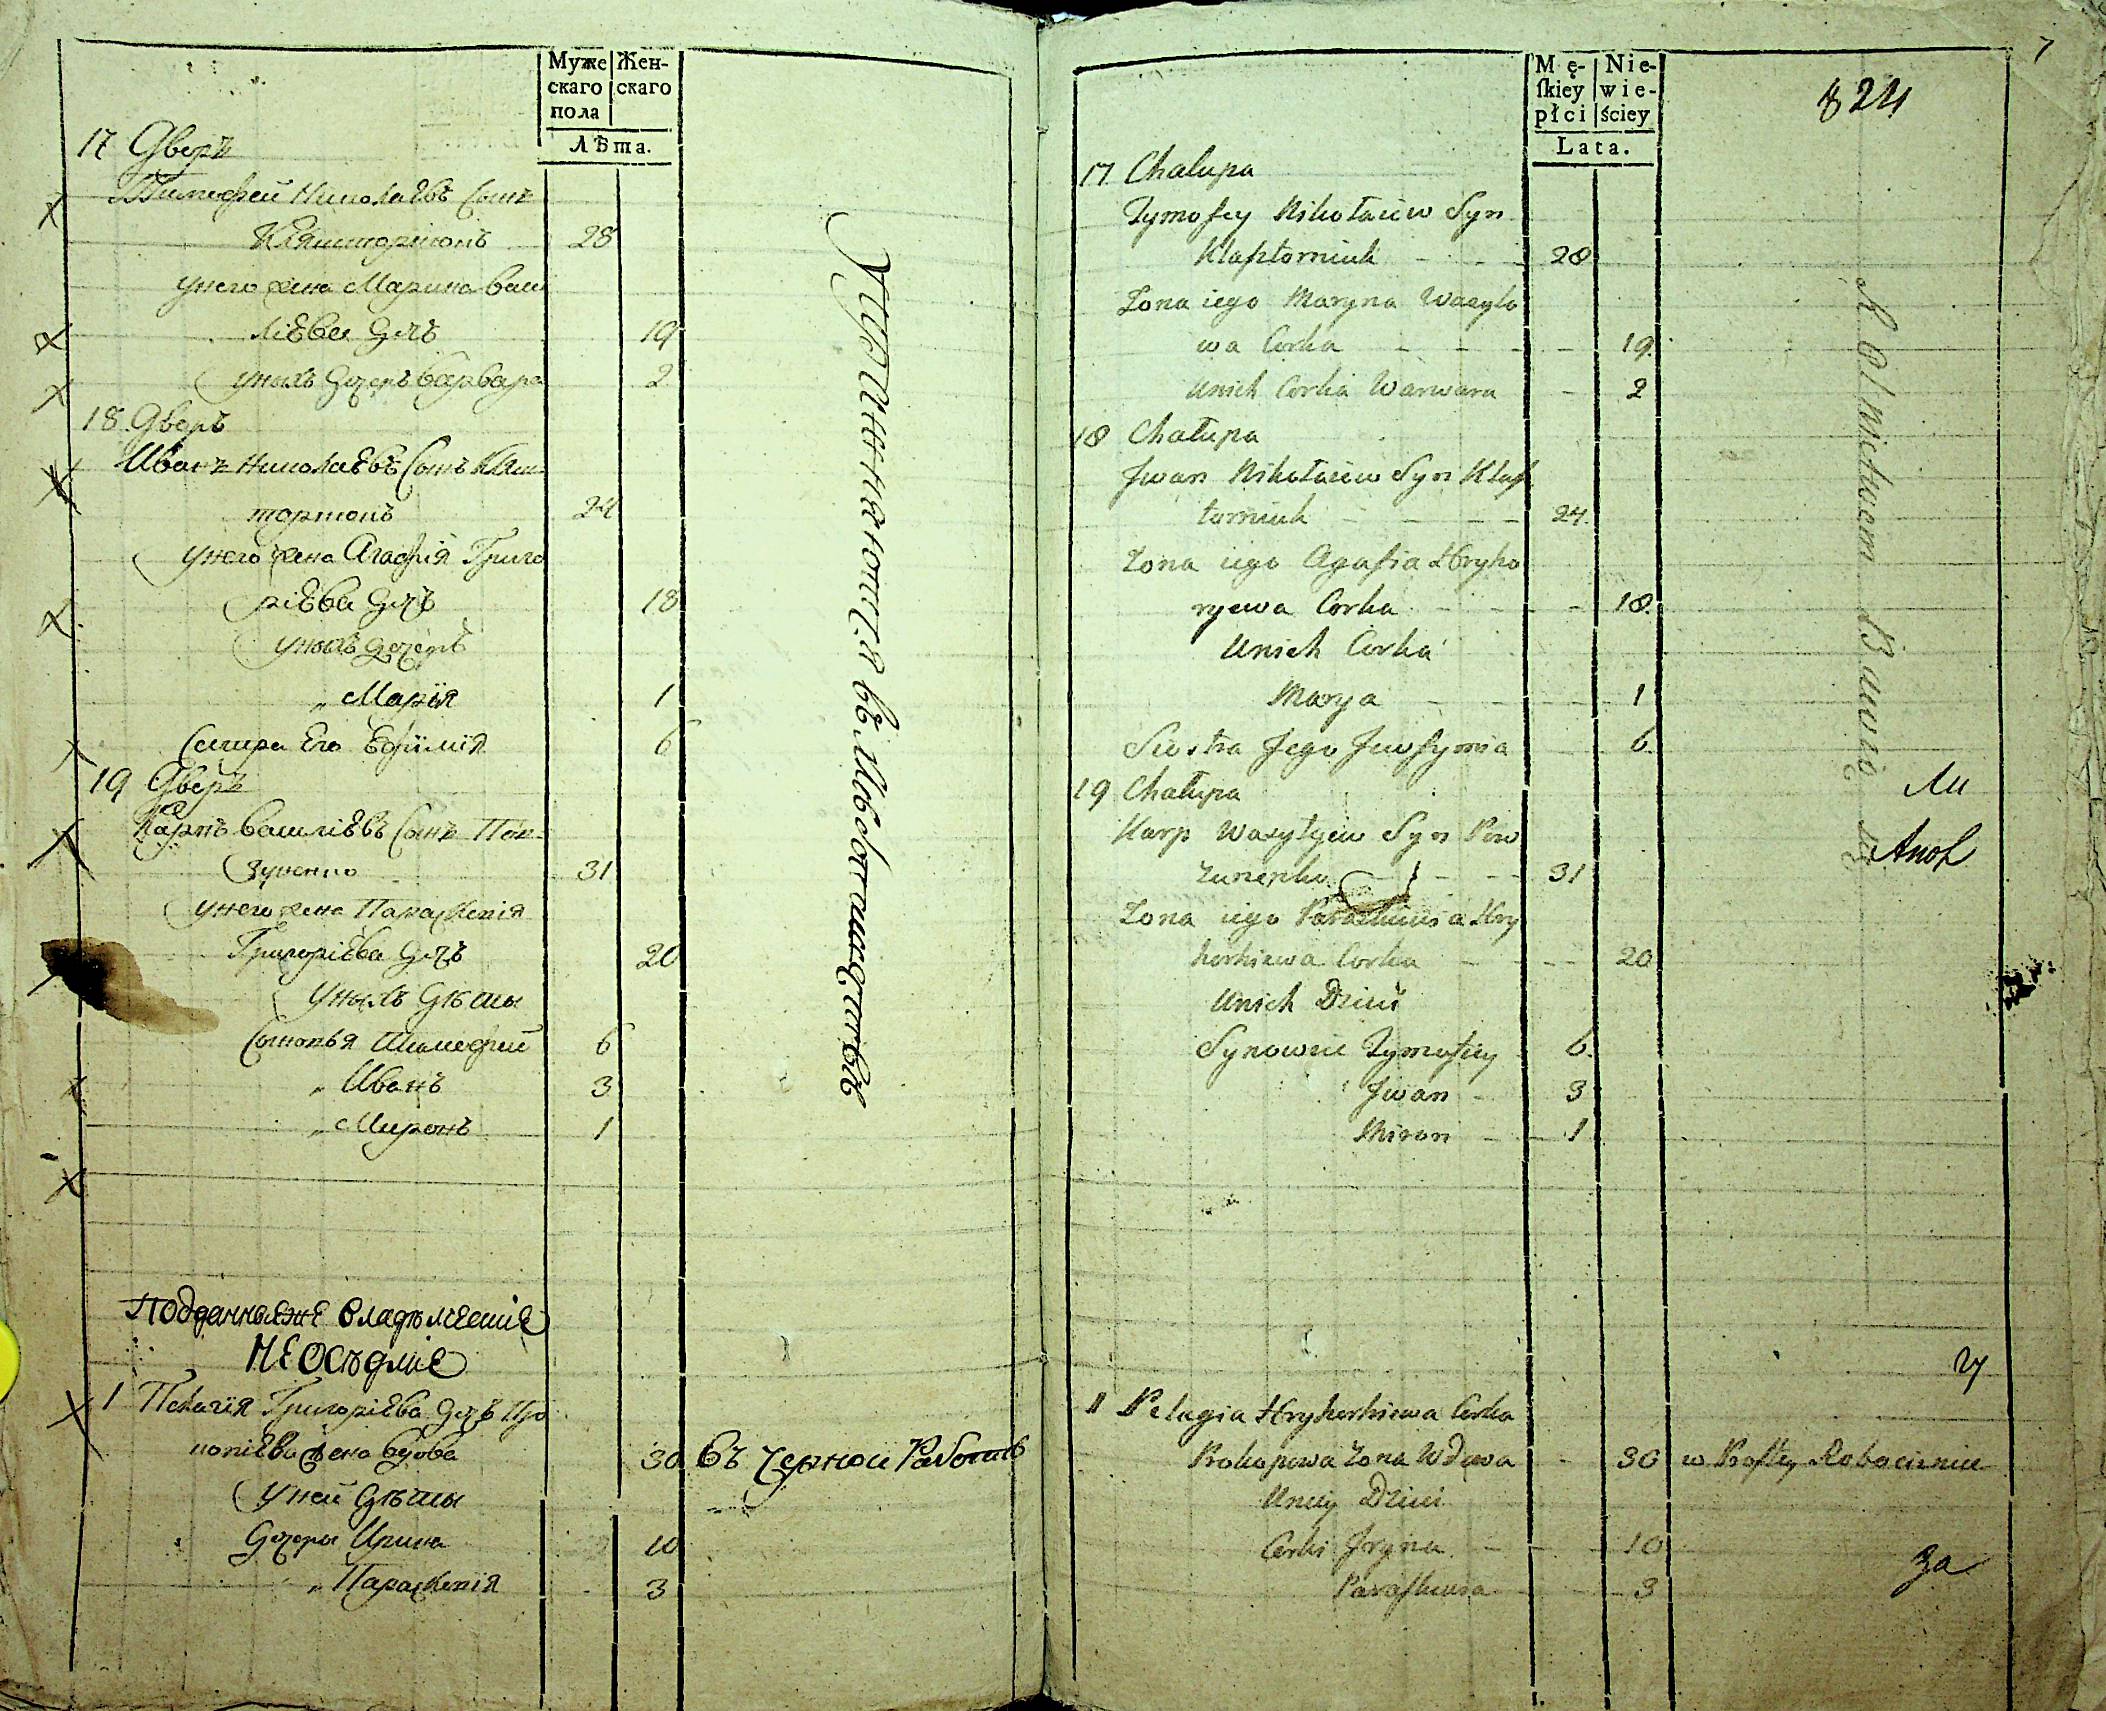 Муже
скаго
пола
Жен-
скаго
Лѣта.
17 Дворъ
Тимофей Николаевъ Сынъ
Кляшторнюкъ 28
унего жена Марина Васи
ліева Дочъ 19
унихъ Дочеръ Варвара 2
18 Дворъ
Иванъ Николаевъ Сынъ Кляш
торнюкъ 24
унего жена Агафія Григо
ріева Дочъ 18
унихъ дочеръ
„ Марія 1
Сестра Его Ефимія 6
19 Дворъ
Карпъ Василіевъ Сынъ Пов
зуненко 31
унего жена Параскевія
Григоріева Дочъ 20
унихъ Дѣты
Сыновья Тимофей 6
„ Иванъ 3
„ Миронъ 1
Упражняются въ Хлебопашествѣ
Подданныеже Владѣлческіе
НЕОСѣДЛИЕ
1 Пелагія Григоріева Дочъ Про
копіева жена Вдова 30 Въ Черной Работѣ
уней Дѣты
Дочеры Ирина 10
„ Параскевія 3
7
824
Mę-
ſkiey
płci
Nie-
wie-
ściey
Lata.
17 Chalupa
Tymofey Nikołaiew Syn
Klasztorniuk 28
Zona iego Maryna Wasylo
wa Corka 19
Unich Corka Warwara 2
18 Chałupa
Jwan Nikołaiew Syn Klasz
torniuk 24
Zona iego Agafia Hryho
ryewa Corka 18
Unich Corka
Marya 1
Siostra Jego Jewfymia 6
19 Chałupa
Karp Wasylyew Syn Pow
zunenko 31
Zona iego Paraskewia Hry
horhiewa Corka 20
Unich Dzieci
Synowie Tymofiey 6
Jwan 3
Miron 1
Rolnictwem Bawią się
Ли
1 Pelagia Hryhorhiewa Corka
Prokopowa Zona Wdowa 30 w Prostey Robociznie
Uniey Dzieci
Corki Jryna 10
Paraskewia 3
За